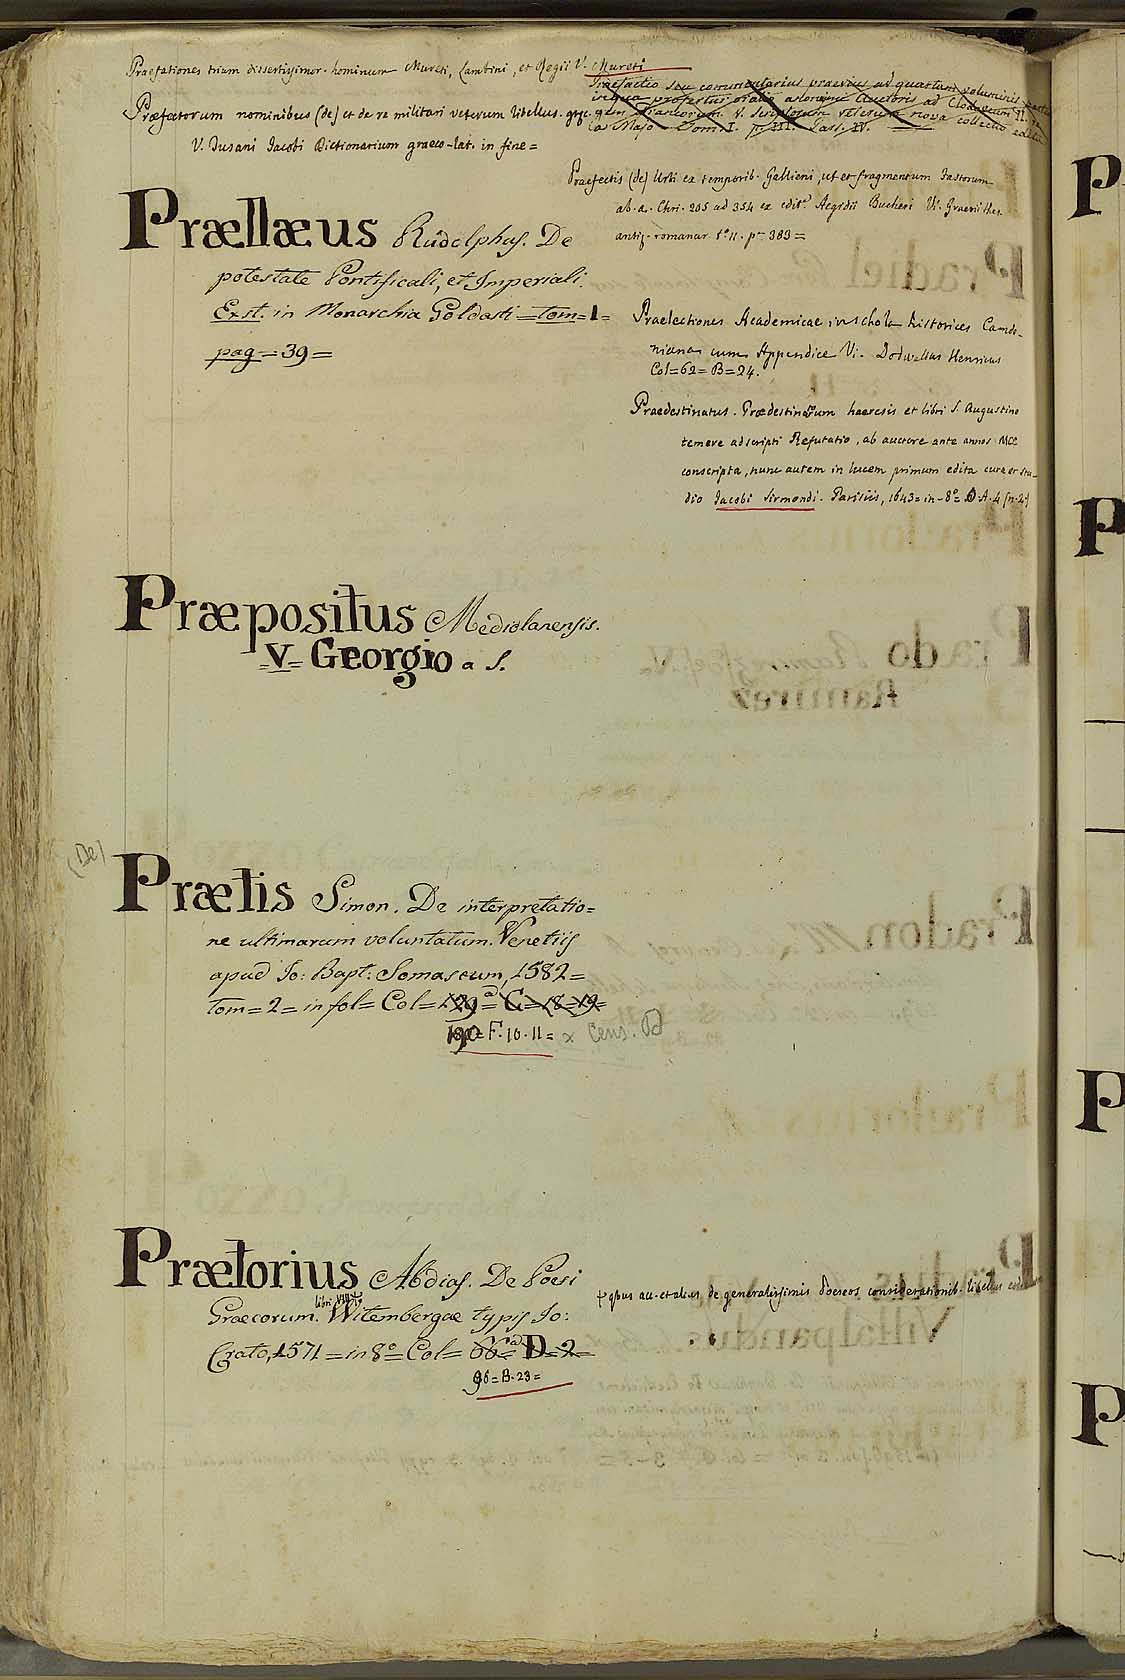 Praefationes trium dissertissimor. hominum Mureti, Lambini, et Regii V. Mureti
Praefatio seu commentarius praevius ad quartum voluminis
in qua profertur oratio anonymi Auctoris ad Clodoveum
gem Francorum. V. Scriptorum veterum nova collectio edita
Majo Tom. I. p. III.
Præfectorum nominibus (de) et de re militari veterum libellus
V. Dusani Jacobi Dictionarium graeco-lat. in fine=
Praefectis (de) Urbi ex temporib. Gallieni, ut et fragmentum Fastorum
ab. a. Chri. 205 ad 354 ex edit.ᵉ Aegidii Bucheri V. Graevii thes.
antiq. romanar. t.º 11. p. 383=
Prællæus Rudolphus. De
potestate Pontificali, et Imperiali.
Exst. in Monarchia Goldasti=tom=1=
pag=39=
Praelectiones Academicae in schola historices Camde-
niana cum Appendice Vi. Dodwellus Henricus
Col=62=B=24.
Praedestinatus. Prædestinatorum haeresis et libri S. Augustino
temere adscripti Refutatio, ab auctore ante annos MCC
conscripta, nunc autem in lucem primum edita cura et stu-
dio Jacobi Sirmondi. Parisiis, 1643=in-8º=D.A.4 (n.2)
Præpositus Mediolanensis.
V= Georgio a S.
(De)
Prætis Simon. De interpretatio=
ne ultimarum voluntatum. Venetiis
apud Jo: Bapt: Somascum, 1582=
tom=2=in fol=Col=129=G=18=19=
190=F.10.11= x Cens.
Prætorius Abdias. De Poesi
Graecorum. libri VIII Witembergae typis Jo:
Crato, 1571=in 8º=Col=66=D=2=
96=B.23=
quibus ac. et alius de generalissimis Poeseos considerationib. libellus